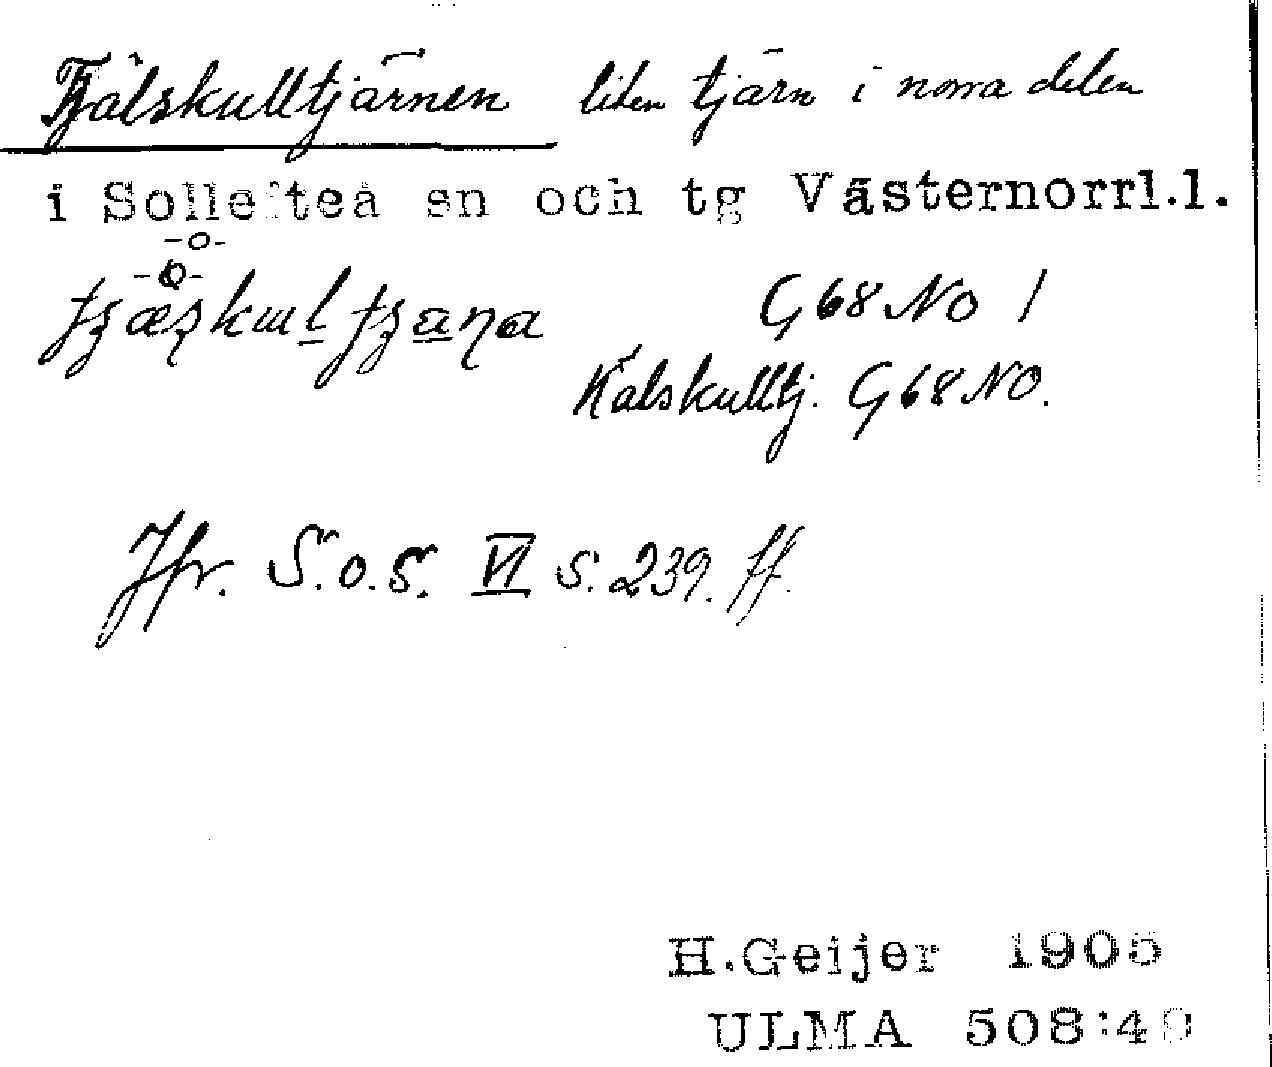 Tjälskulltjärnen liten tjärn i norra delen
i Sollefteå sn och tg Västernorrl.l.
-o-
-o-
G 68 NO 1
Kälskulltj. G 68 NO.
Jfr. S.o.S. VI s. 239. ff.
H.Geijer 1905
ULMA 508:4